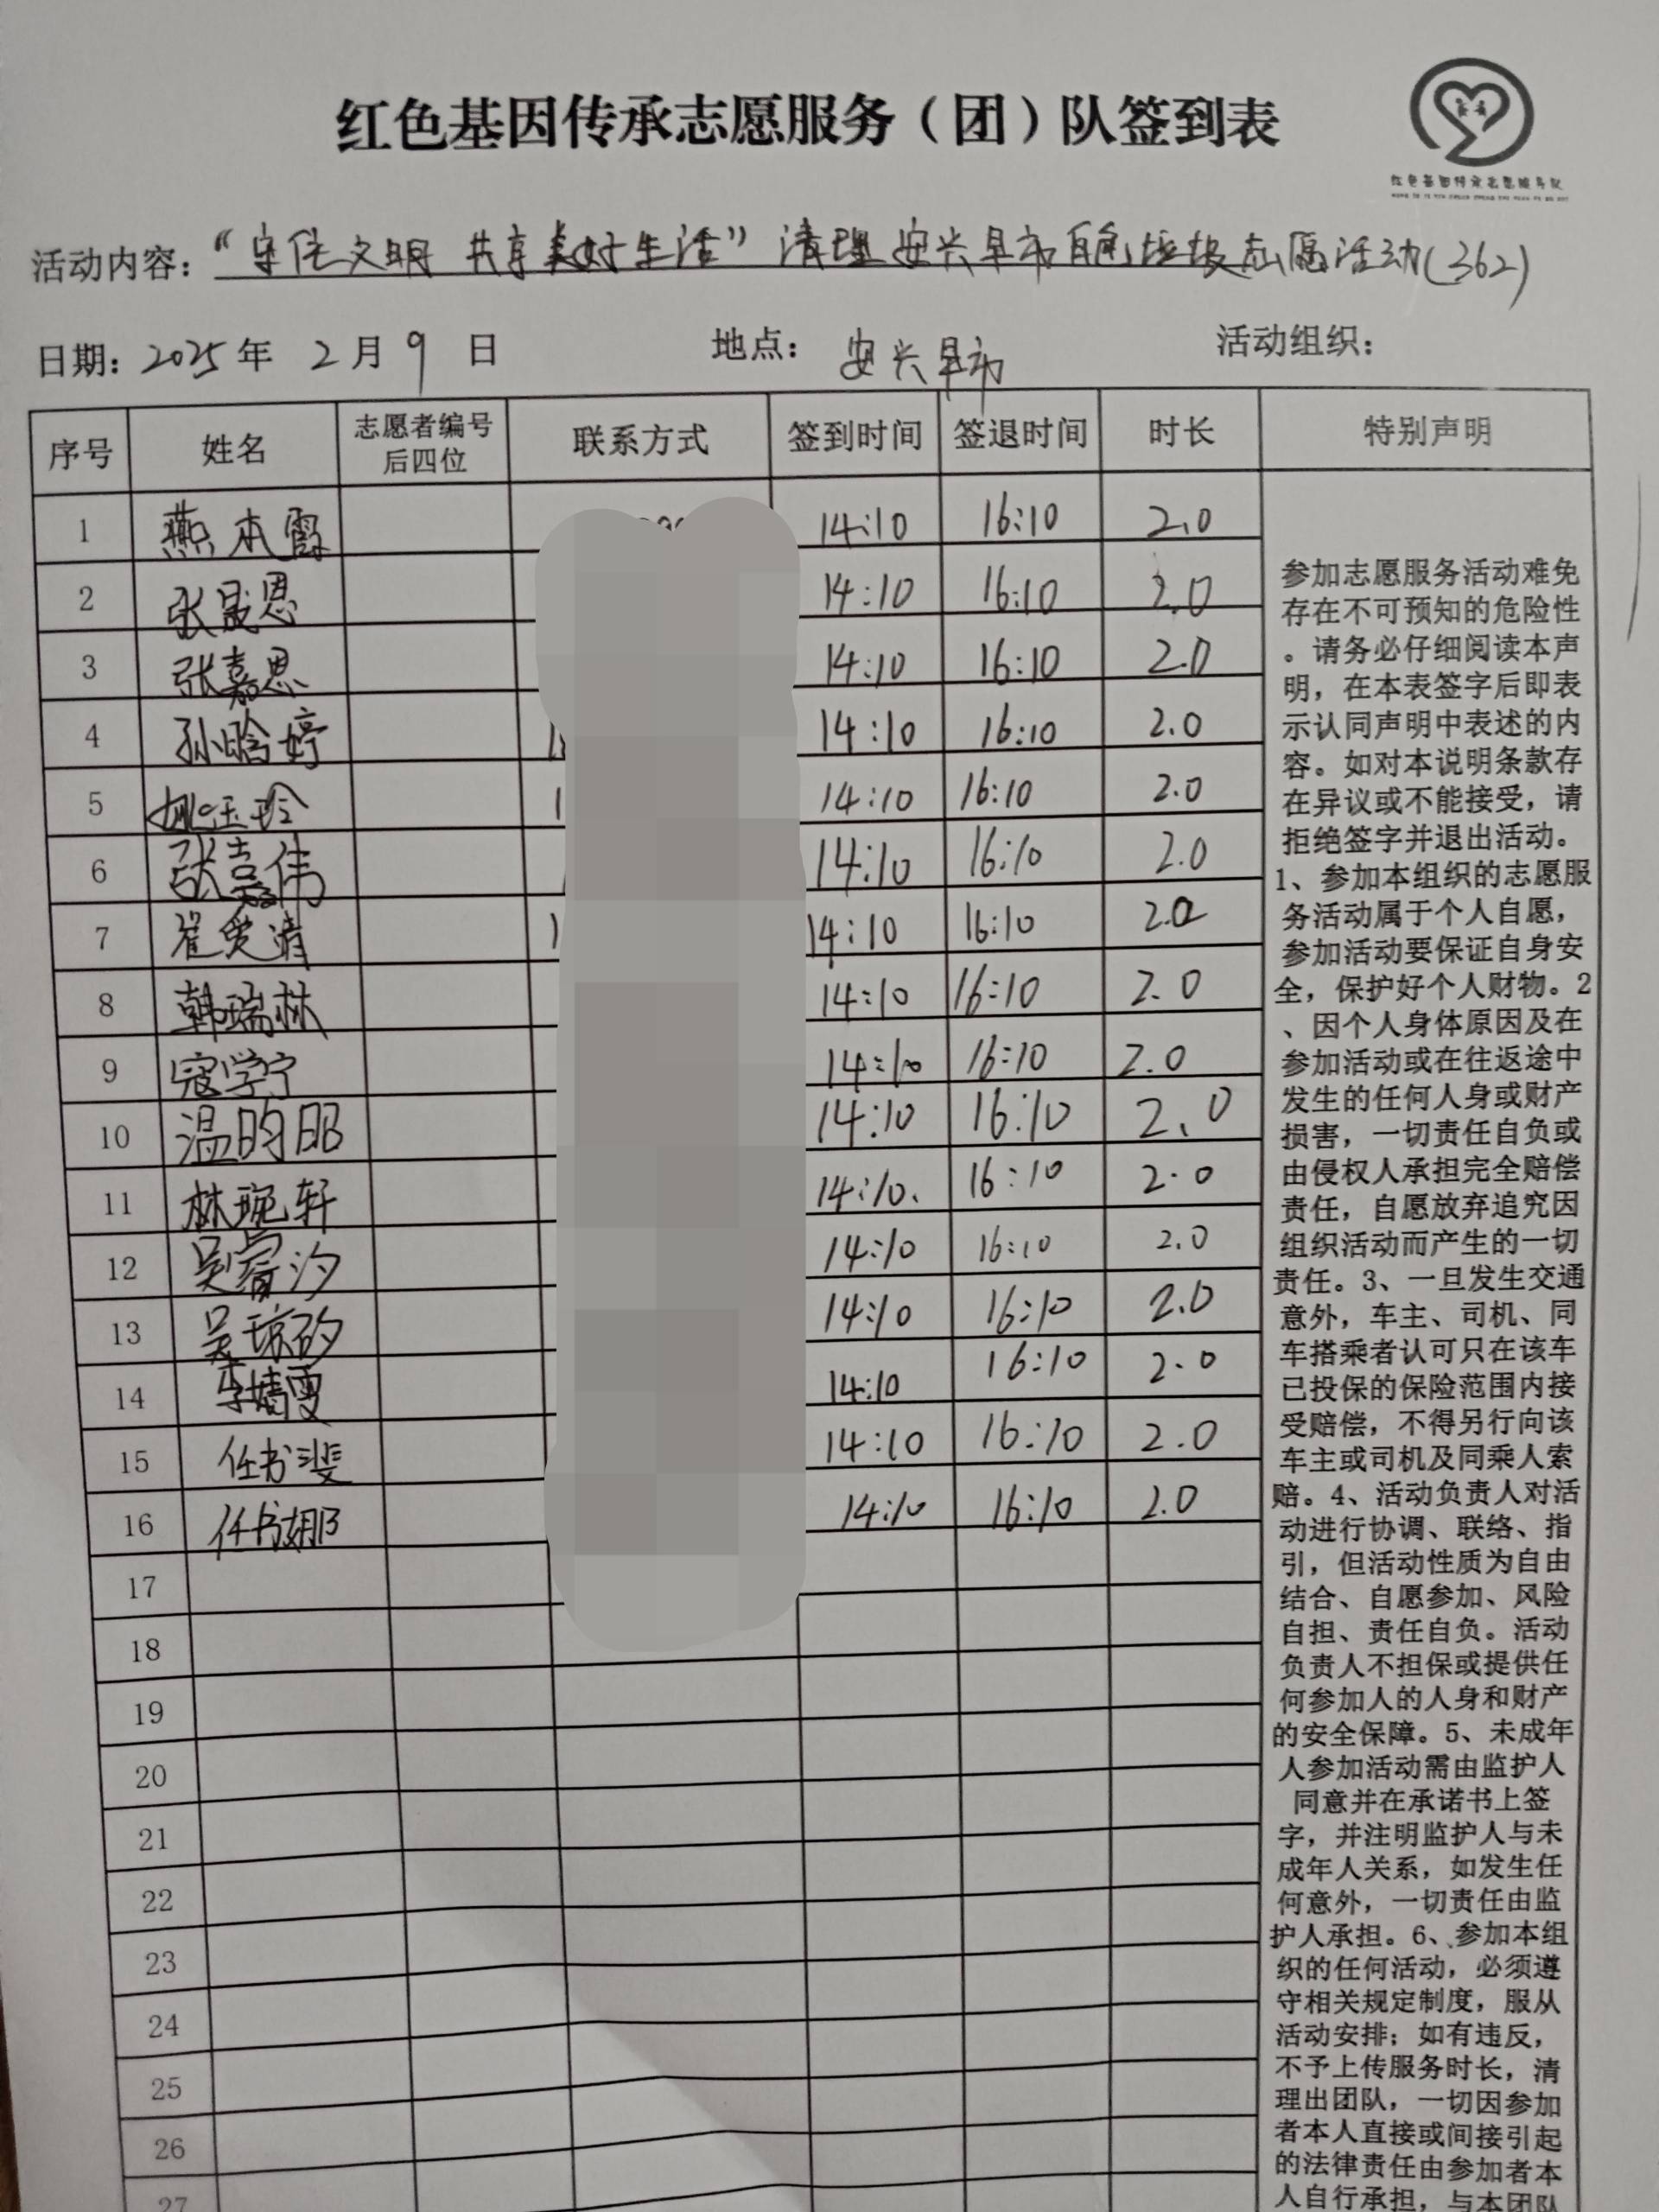 红色基因传承志愿服务（团）队签到表
红色基因传承志愿服务队
活动内容：“守住文明 共享美好生活”清理安兴早市白色垃圾志愿活动(362)
日期：2025年 2月9日 地点：安兴早市 活动组织：
序号 姓名 志愿者编号后四位 联系方式 签到时间 签退时间 时长 特别声明
1 燕本霞 14:10 16:10 2.0
2 张晟恩 14:10 16:10 2.0
3 张嘉恩 14:10 16:10 2.0
4 孙晗婷 14:10 16:10 2.0
5 姚玉玲 14:10 16:10 2.0
6 张嘉伟 14:10 16:10 2.0
7 崔爱清 14:10 16:10 2.0
8 韩瑞林 14:10 16:10 2.0
9 寇学宁 14:10 16:10 2.0
10 温昀昭 14:10 16:10 2.0
11 林琬轩 14:10 16:10 2.0
12 吴睿汐 14:10 16:10 2.0
13 吴琼矽 14:10 16:10 2.0
14 李婧雯 14:10 16:10 2.0
15 任书斐 14:10 16:10 2.0
16 任书娜 14:10 16:10 2.0
17
18
19
20
21
22
23
24
25
26
27
参加志愿服务活动难免
存在不可预知的危险性
。请务必仔细阅读本声
明，在本表签字后即表
示认同声明中表述的内
容。如对本说明条款存
在异议或不能接受，请
拒绝签字并退出活动。
1、参加本组织的志愿服
务活动属于个人自愿，
参加活动要保证自身安
全，保护好个人财物。2
、因个人身体原因及在
参加活动或在往返途中
发生的任何人身或财产
损害，一切责任自负或
由侵权人承担完全赔偿
责任，自愿放弃追究因
组织活动而产生的一切
责任。3、一旦发生交通
意外，车主、司机、同
车搭乘者认可只在该车
已投保的保险范围内接
受赔偿，不得另行向该
车主或司机及同乘人索
赔。4、活动负责人对活
动进行协调、联络、指
引，但活动性质为自由
结合、自愿参加、风险
自担、责任自负。活动
负责人不担保或提供任
何参加人的人身和财产
的安全保障。5、未成年
人参加活动需由监护人
同意并在承诺书上签
字，并注明监护人与未
成年人关系，如发生任
何意外，一切责任由监
护人承担。6、参加本组
织的任何活动，必须遵
守相关规定制度，服从
活动安排；如有违反，
不予上传服务时长，清
理出团队，一切因参加
者本人直接或间接引起
的法律责任由参加者本
人自行承担，与本团队